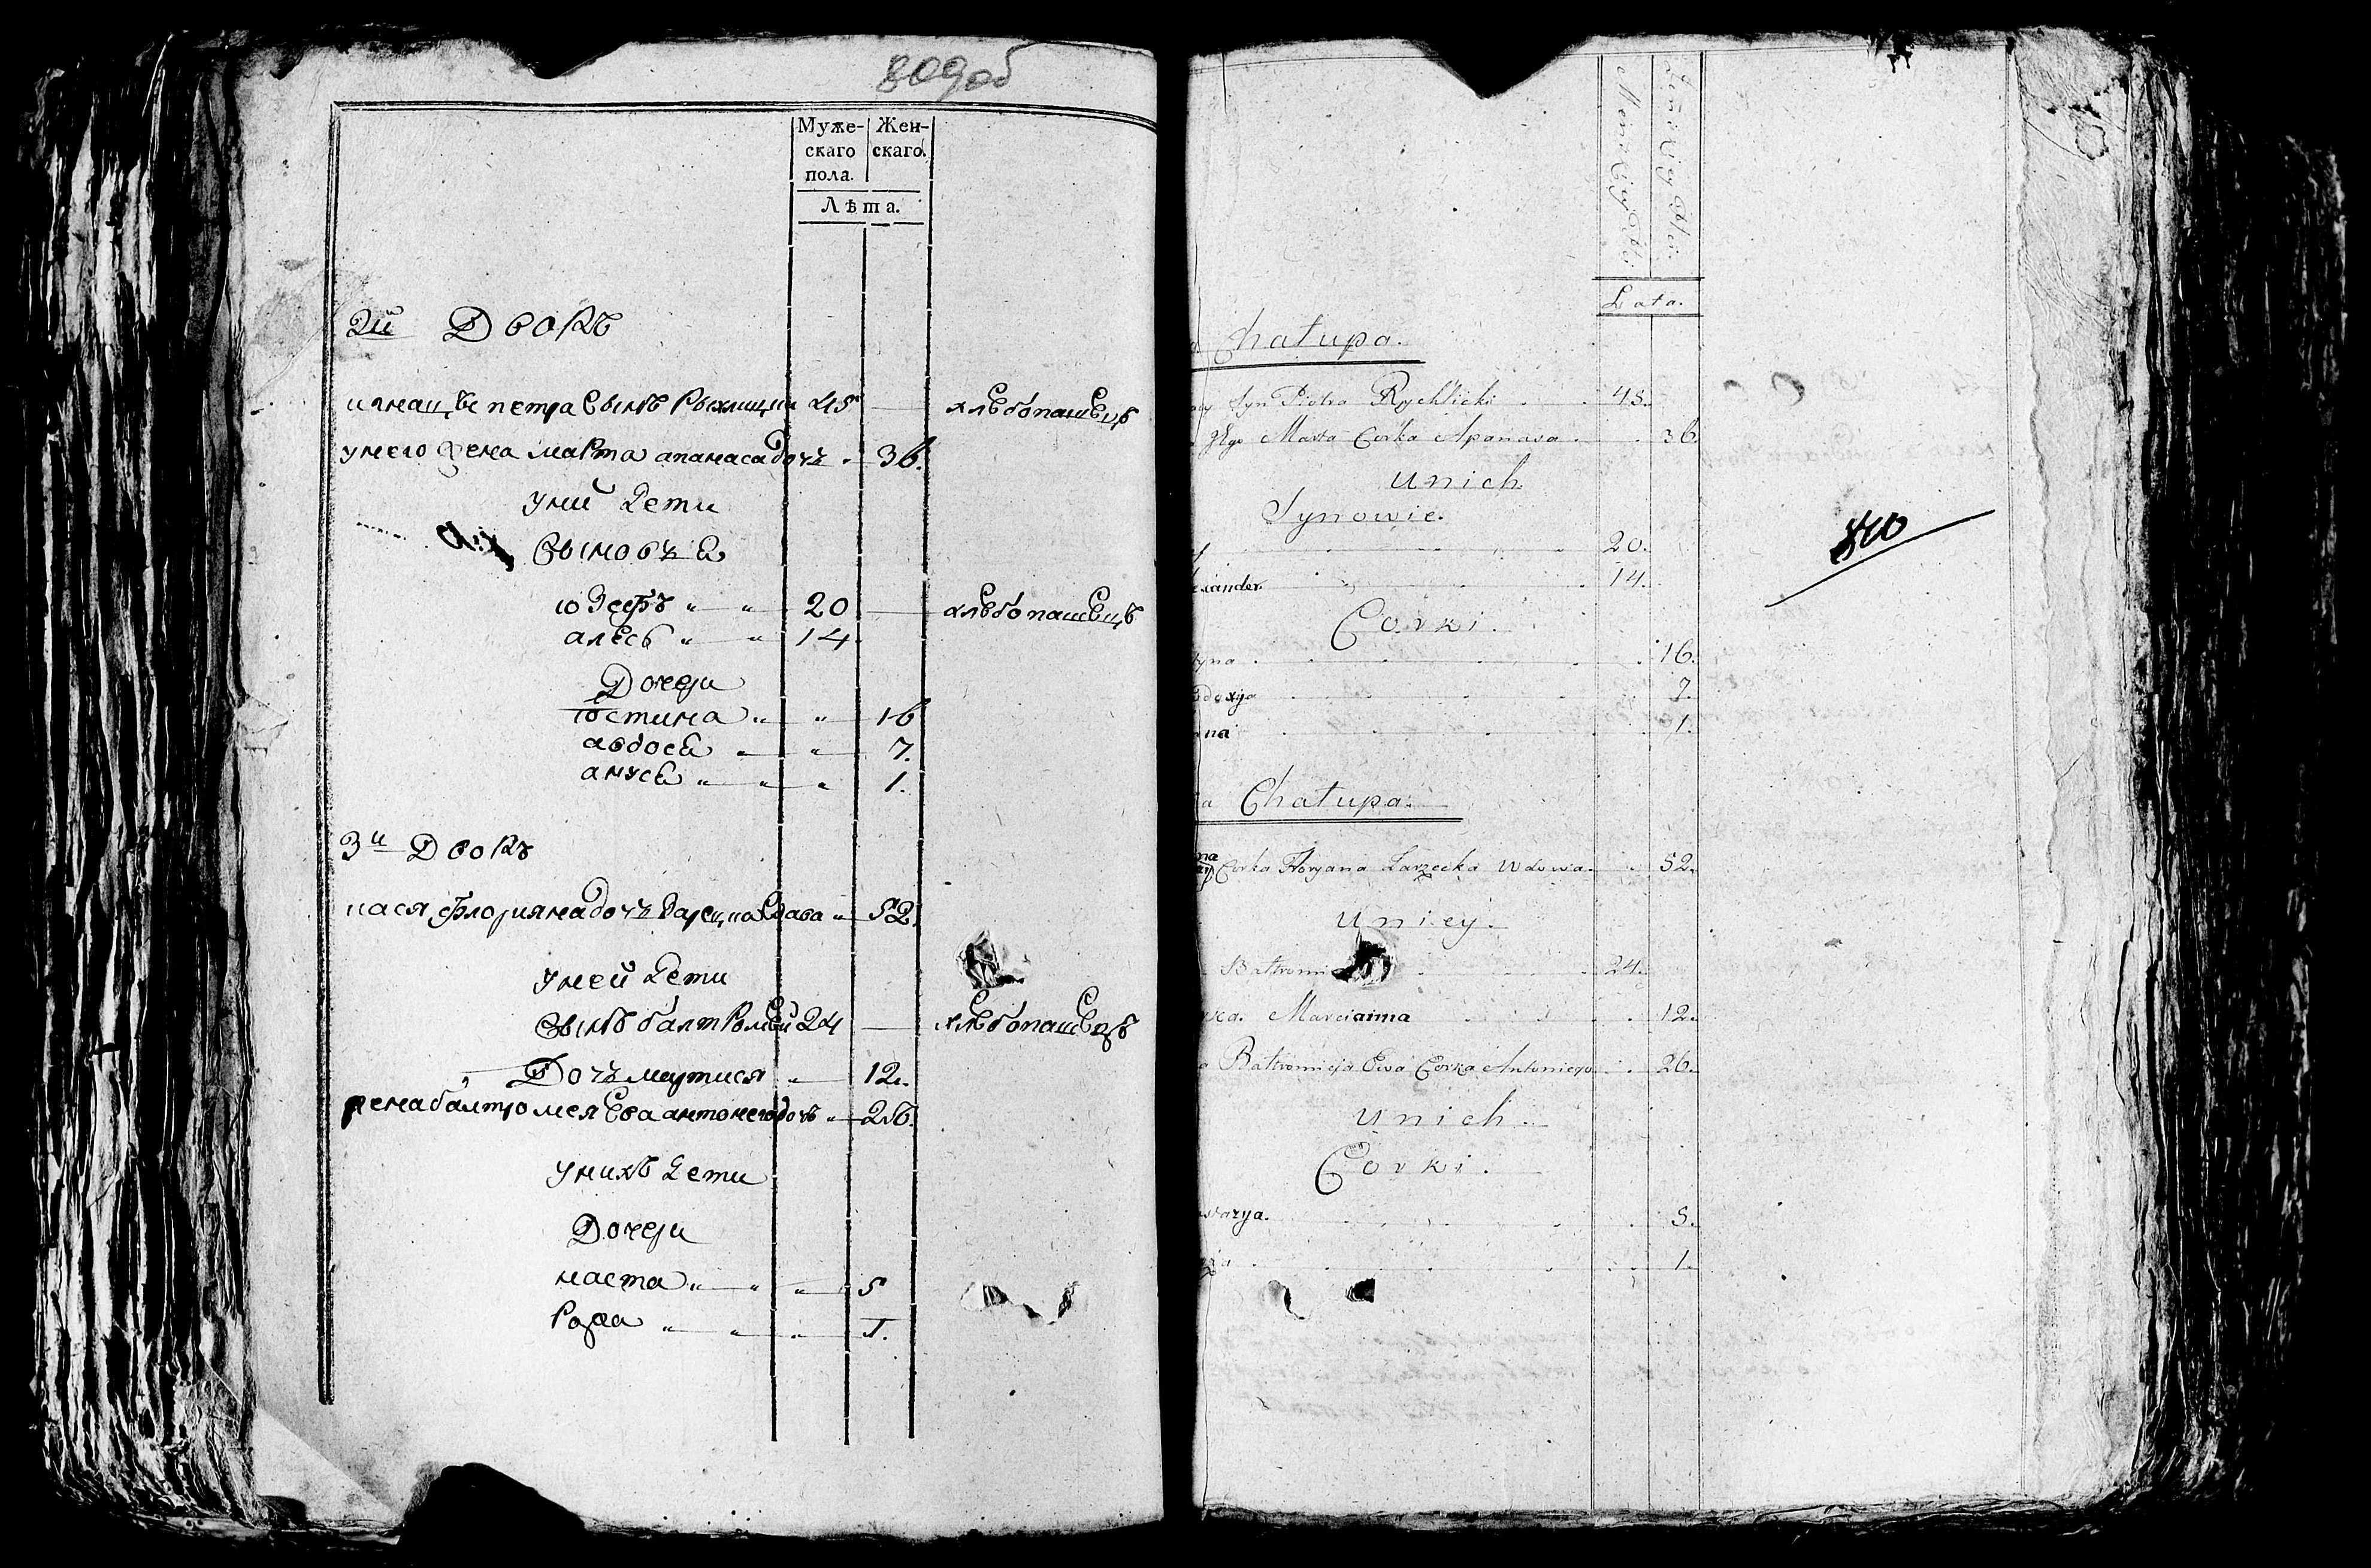 809об
Муже- Жен-
скаго скаго.
пола.
Лѣта.
2й Дворъ
игнацы петра сынъ Рыхлицки 45 — хлѣбопашецъ
унего жена марта апанаса дочъ „ 36.
уних дети
сыновъе
юзефъ „ „ 20 — хлѣбопашецъ
алесь „ „ 14
Дочери
юстина „ „ 16
авдося „ „ 7.
ануся „ „ „ 1.
3й Дворъ
Флорияна дочъ „ 52.
уней дети
сынъ балтромей 24 — хлѣбопашецъ
Дочъ мартися „ 12.
жена балтромея Ева антонего дочъ „ 26.
унихъ дети
Дочери
наста „ „ „ 5
Рожа „ „ „ 1.
Lata.
Chałupa.
Syn Piotra Rychlicki 45.
Jego Marta Corka Apanasa 36
unich
Synowie.
20.
exander 14.
Corki.
tyna 16.
doxija 7.
na 1.
a Chałupa.
Corka Floryana Zarzecka Wdowa 52.
uniey.
Batromi 24.
Marcianna 12.
Batromieja Ewa Corka Antoniego 26.
unich
Corki.
starya. 5.
ża 1.
810